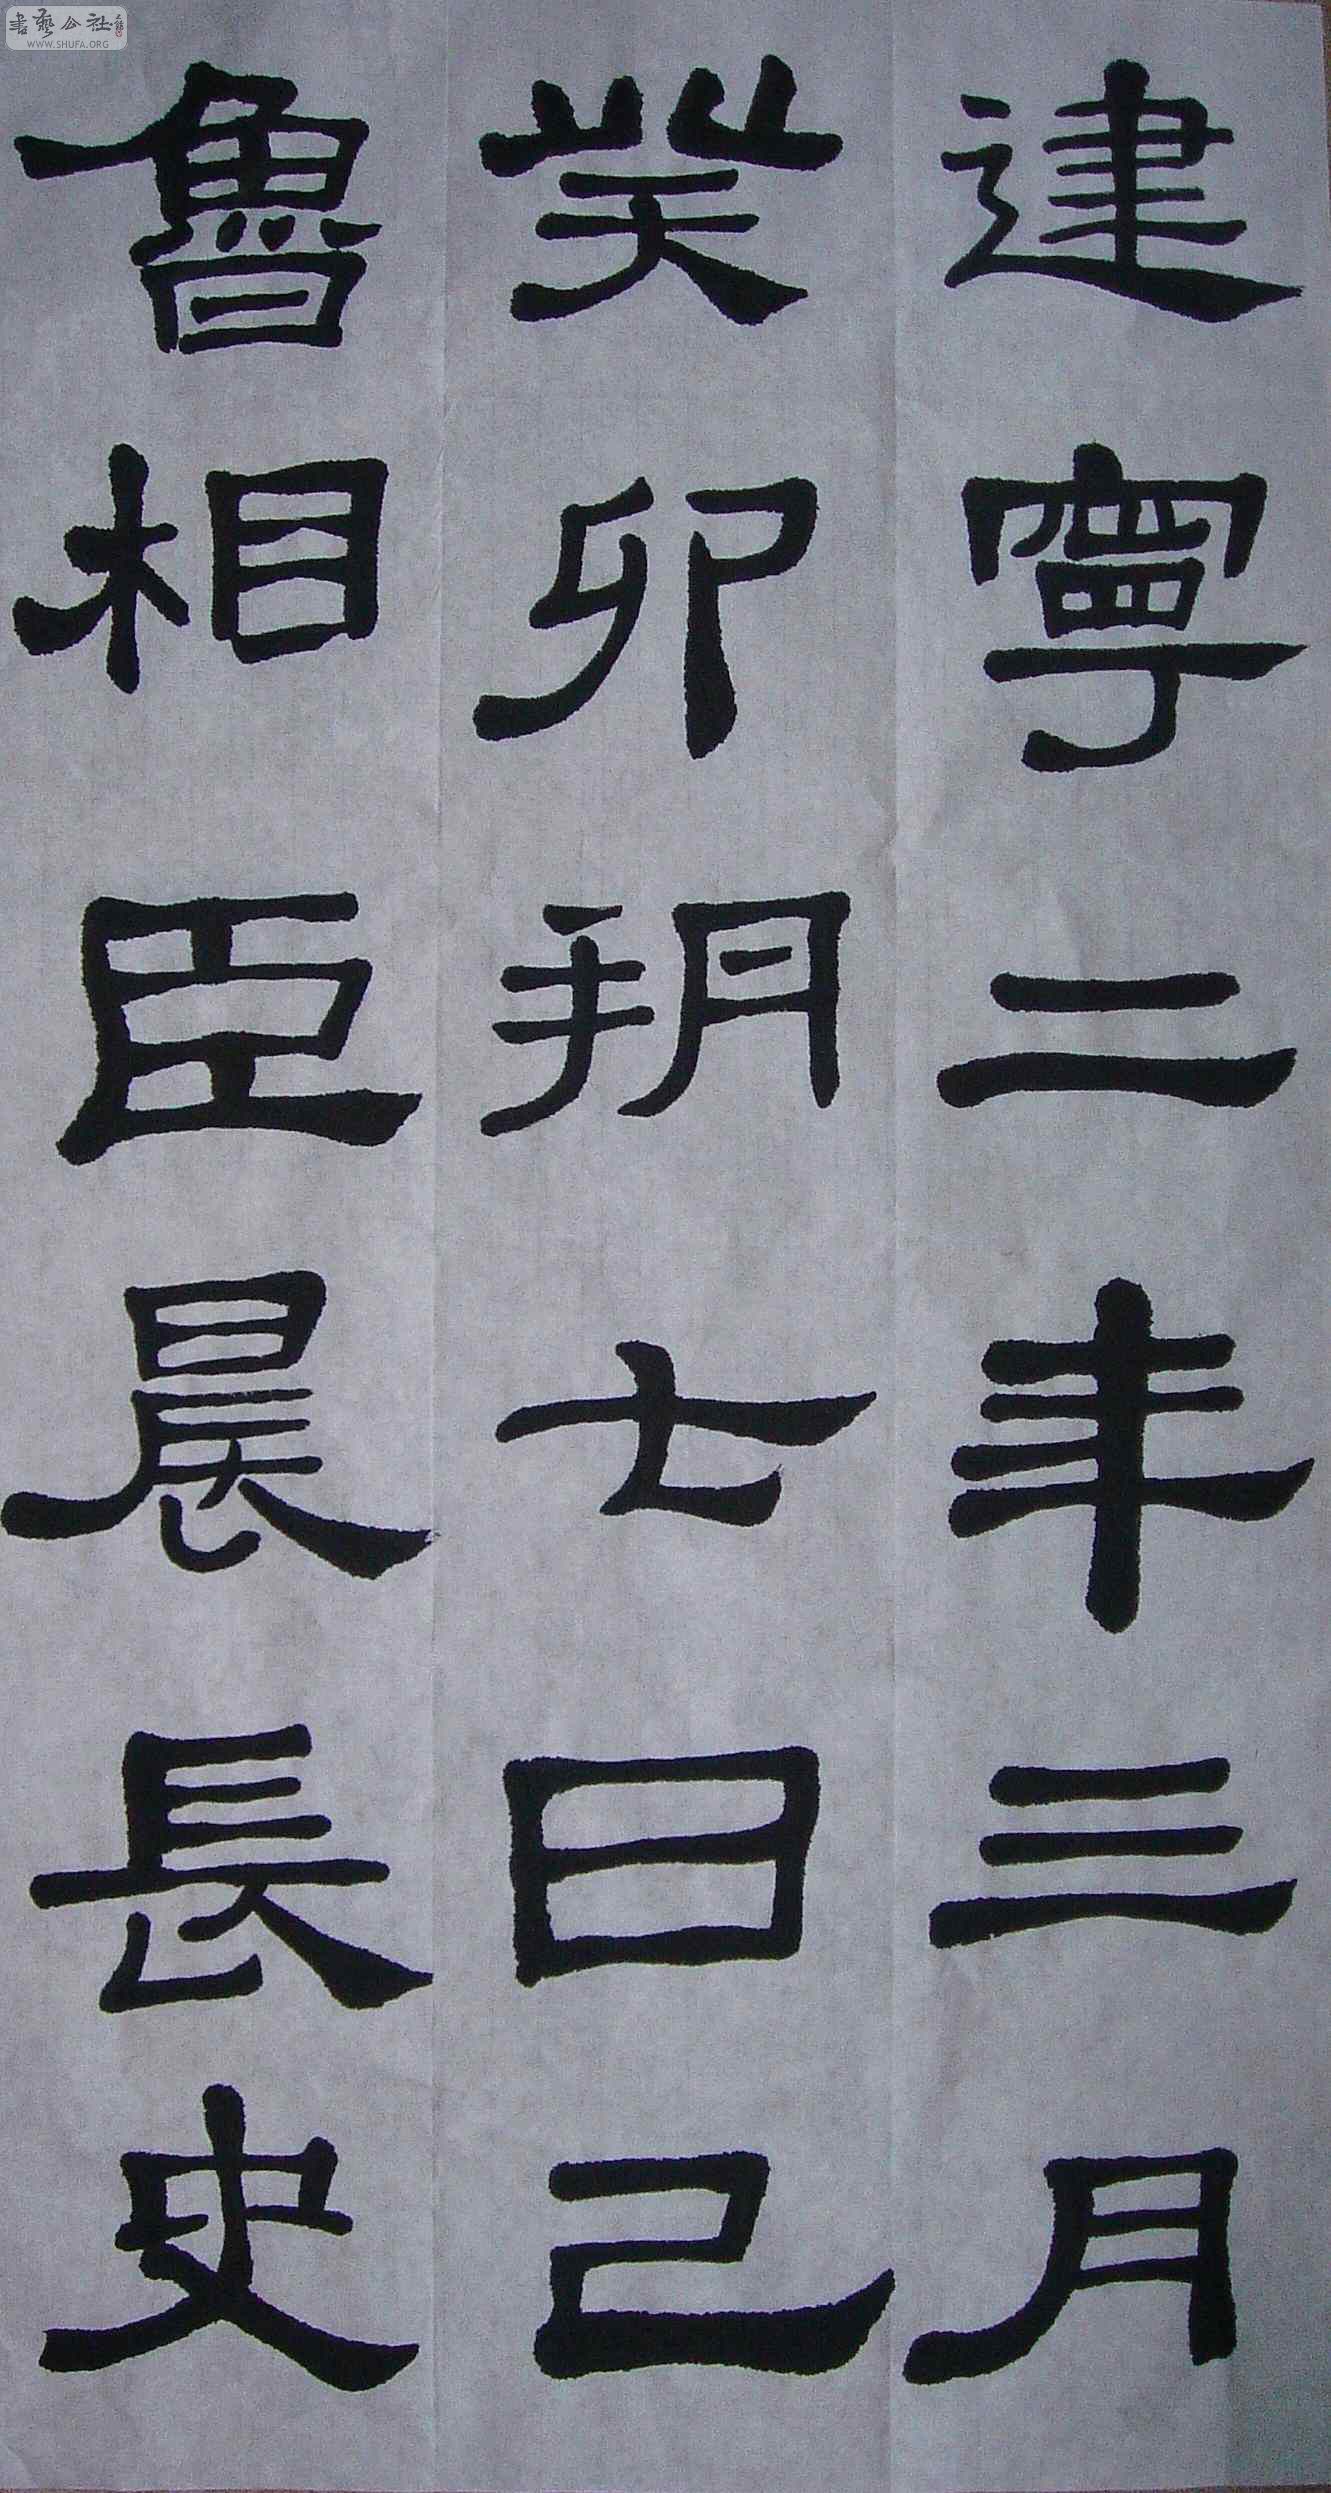 建寧二年三月
癸卯朔七日己
魯相臣晨長史
書藝公社
WWW.SHUFA.ORG